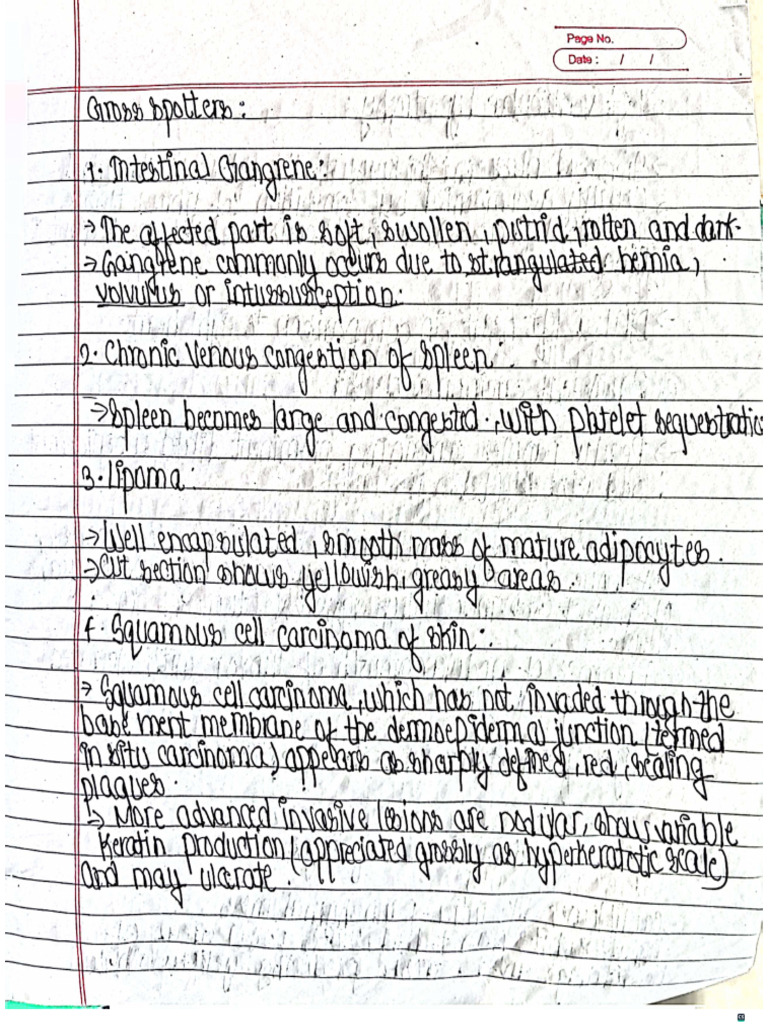 Page No.
Date : / /
Gross spotters :
1. Intestinal Gangrene :
→ The affected part is soft, swollen, putrid, rotten and dark.
→ Gangrene commonly occurs due to strangulated hernia,
volvulus or intussusception.
2. Chronic Venous Congestion of Spleen :
→ Spleen becomes large and congested, with platelet sequestratio
3. Lipoma :
→ Well encapsulated, smooth mass of mature adipocytes.
→ Cut section shows yellowish, greasy areas.
4. Squamous cell carcinoma of skin :
→ Squamous cell carcinoma, which has not invaded through the
basement membrane of the dermoepidermal junction (termed
in situ carcinoma) appears as sharply defined, red, scaling
plaques.
→ More advanced invasive lesions are nodular, shows variable
keratin production (appreciated grossly as hyperkeratotic scale)
and may ulcerate.